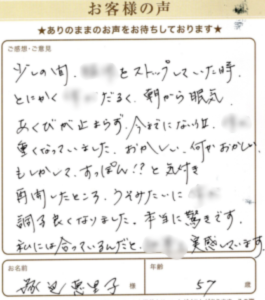 お客様の声
★ありのままのお声をお待ちしております★
ご感想・ご意見
少しの間、とストップしていた時、
とにかくだるく、朝から眠気、
あくびが止まらず、今までになり
重くなっていました。おかしい、何かおかしい
もしかして、すっぽん!?と気付き
再開したところ、うそみたいに
調子良くなりました。本当に驚きです。
私には合っているんだと、実感しています。
お名前
恵里子 様
年齢
57 歳